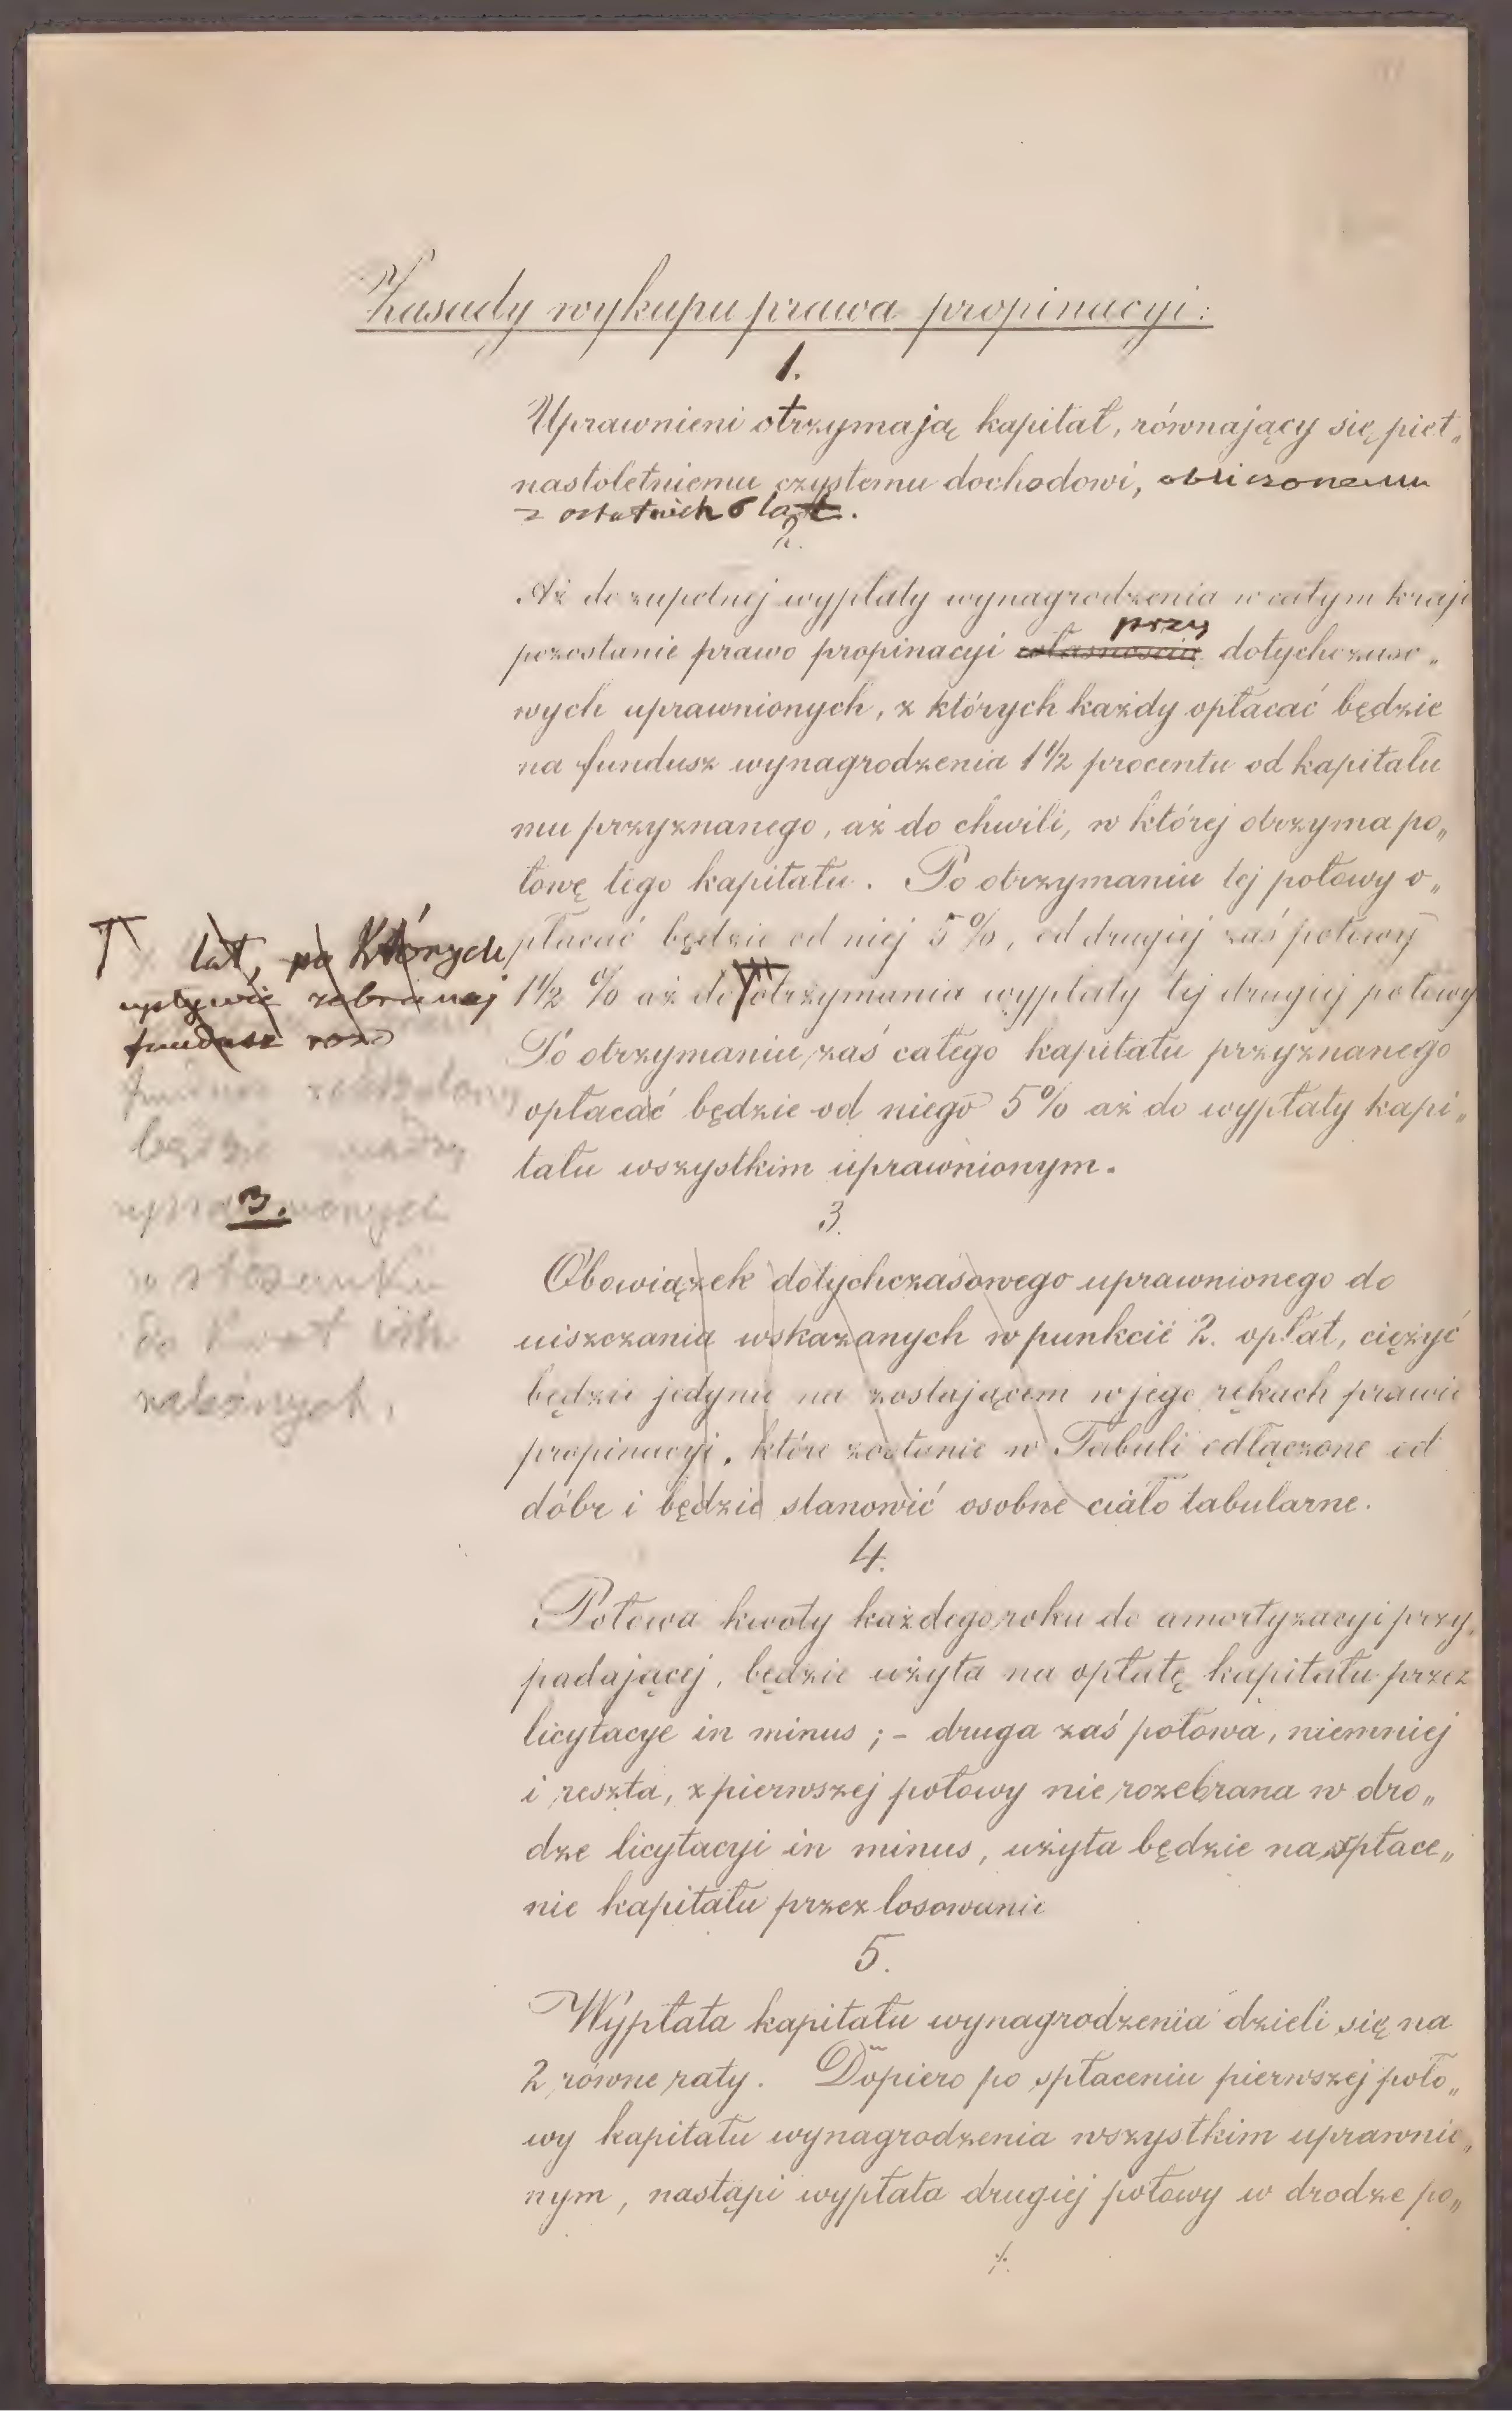 Zasady wykupu prawa propinacyi:
1.
Uprawnieni otrzymają kapitał, równający się pięt„
nastoletniemu czystemu dochodowi, obliczonemu
z ostatnich 6 lat.
2.
Aż do zupełnej wypłaty wynagrodzenia w całym kraju
przy
pozostanie prawo propinacyi własnością dotychczaso„
wych uprawnionych, z których każdy opłacać będzie
na fundusz wynagrodzenia 1 1/2 procentu od kapitału
mu przyznanego, aż do chwili, w której otrzyma po„
łowę tego kapitału. Po otrzymaniu tej połowy o„
płacać będzie od niej 5%, od drugiej zaś połowy
1 1/2 % aż do otrzymania wypłaty tej drugiej połowy
Po otrzymaniu zaś całego kapitału przyznanego
opłacać będzie od niego 5% aż do wypłaty kapi„
tału wszystkim uprawnionym.
lat, po których
upływie zebrany
fundusz roz
fundusz rozdzielony
będzie
uprawnionych
3.
w stosunku
do kwot
3.
Obowiązek dotychczasowego uprawnionego do
uiszczania wskazanych w punkcie 2. opłat, ciężyć
będzie jedynie na zostającem w jego rękach prawie
propinacyi, które zostanie w Tabuli odłączone od
dóbr i będzie stanowić osobne ciało tabularne.
4.
Połowa kwoty każdego roku do amortyzacyi przy„
padającej, będzie użyta na opłatę kapitału przez
licytacye in minus; - druga zaś połowa, niemniej
i reszta, z pierwszej połowy nie rozebrana w dro„
dze licytacyi in minus, użyta będzie na spłace„
nie kapitału przez losowanie
5.
Wypłata kapitału wynagrodzenia dzieli się na
2 równe raty. Dopiero po spłaceniu pierwszej poło„
wy kapitału wynagrodzenia wszystkim uprawnio„
nym, nastąpi wypłata drugiej połowy w drodze po„
./.